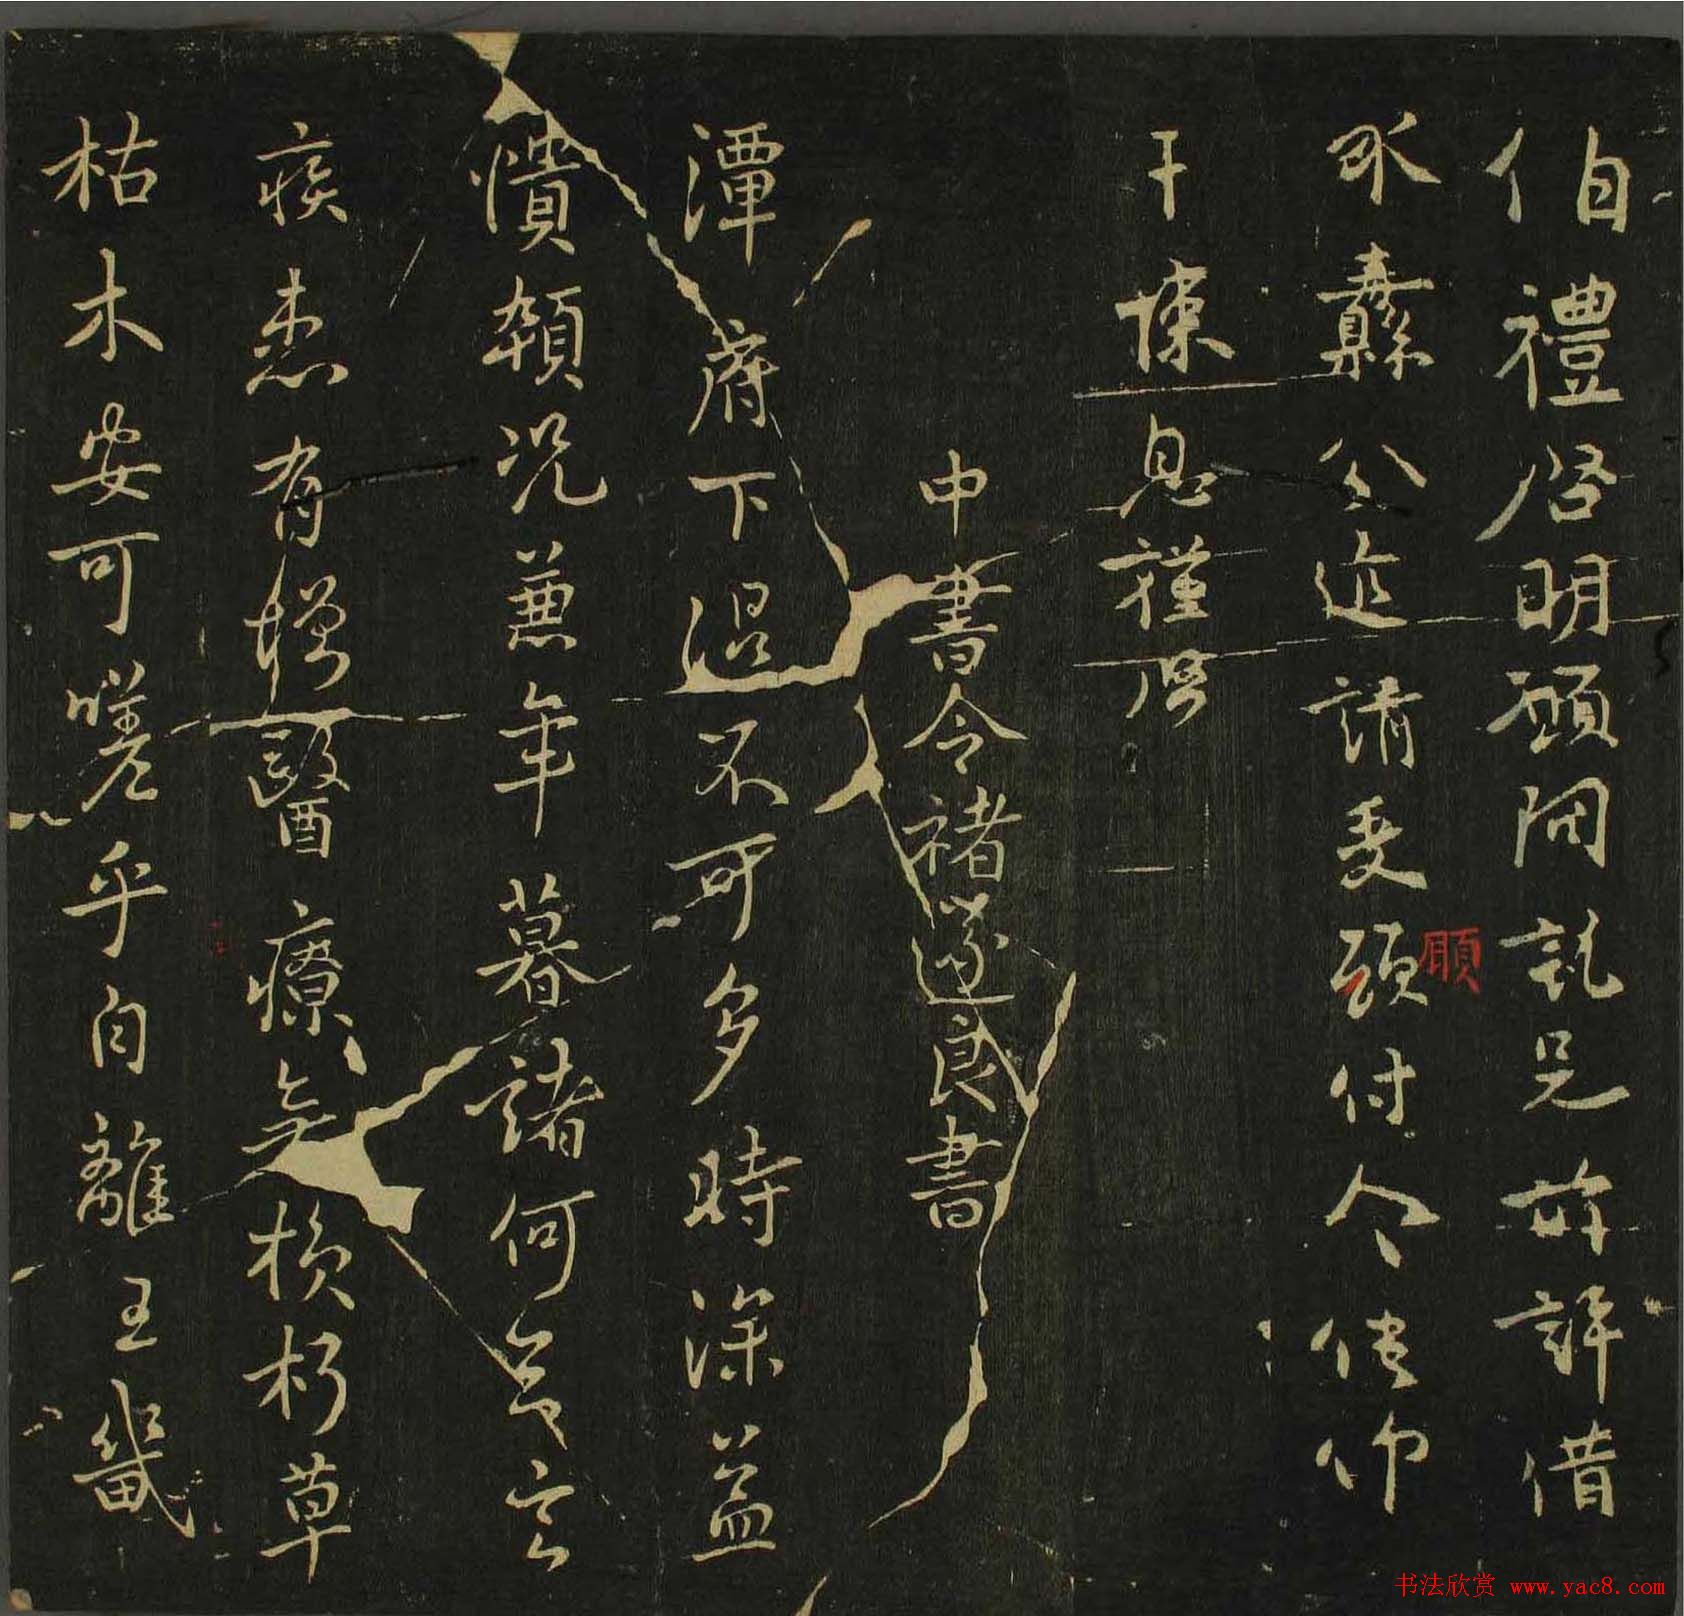 伯禮啓明顧同託兄許借
纛公迹請受付令使仰
干悚息謹啓
中書令褚遂良書
潭府下濕不可多時深益
憒頓況兼年暮諸何足言
疾患有增醫療無損朽草
枯木安可嗟乎自離王畿
书法欣赏 www.yac8.com